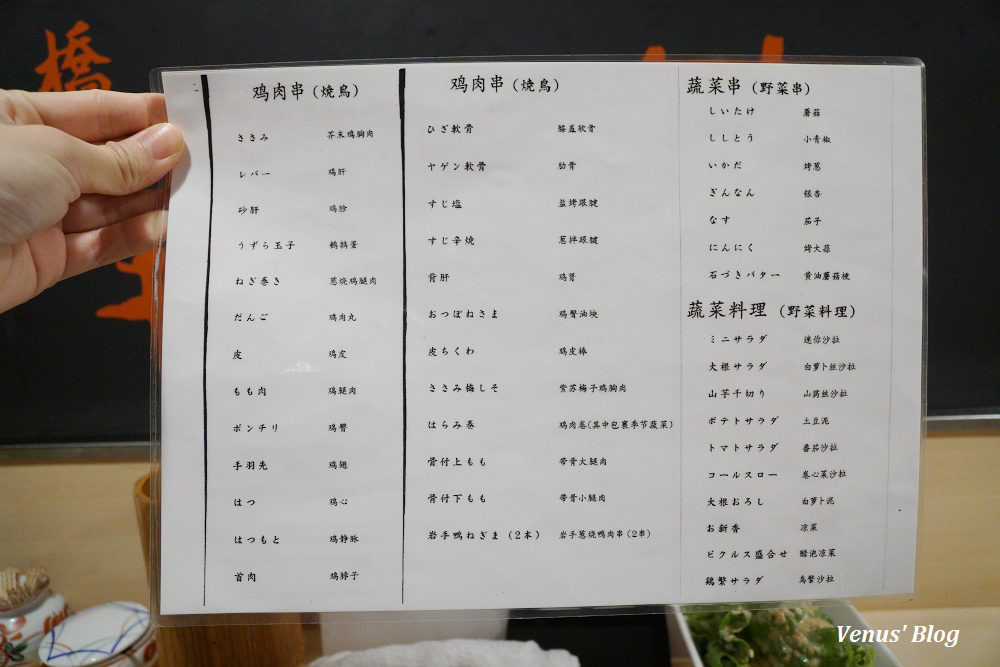 橋
鸡肉串（焼鳥）
ささみ 芥末鸡胸肉
レバー 鸡肝
砂肝 鸡胗
うずら玉子 鹌鹑蛋
ねぎ巻き 葱烧鸡腿肉
だんご 鸡肉丸
皮 鸡皮
もも肉 鸡腿肉
ボンチリ 鸡臀
手羽先 鸡翅
はつ 鸡心
はつもと 鸡静脉
首肉 鸡脖子
鸡肉串（焼鳥）
ひざ軟骨 膝盖软骨
ヤゲン軟骨 肋骨
すじ塩 盐烤跟腱
すじ辛焼 葱拌跟腱
背肝 鸡肾
おつぼねさま 鸡臀油块
皮ちくわ 鸡皮棒
ささみ梅しそ 紫苏梅子鸡胸肉
はらみ巻 鸡肉卷(其中包裹季节蔬菜)
骨付上もも 带骨大腿肉
骨付下もも 带骨小腿肉
岩手鴨ねぎま（2本） 岩手葱烧鸭肉串（2串）
蔬菜串（野菜串）
しいたけ 蘑菇
ししとう 小青椒
いかだ 烤葱
ぎんなん 银杏
なす 茄子
にんにく 烤大蒜
石づきバター 黄油蘑菇梗
蔬菜料理（野菜料理）
ミニサラダ 迷你沙拉
大根サラダ 白萝卜丝沙拉
山芋千切り 山药丝沙拉
ポテトサラダ 土豆泥
トマトサラダ 番茄沙拉
コールスロー 卷心菜沙拉
大根おろし 白萝卜泥
お新香 凉菜
ピクルス盛合せ 醋泡凉菜
鶏繁サラダ 鸟繁沙拉
Venus' Blog